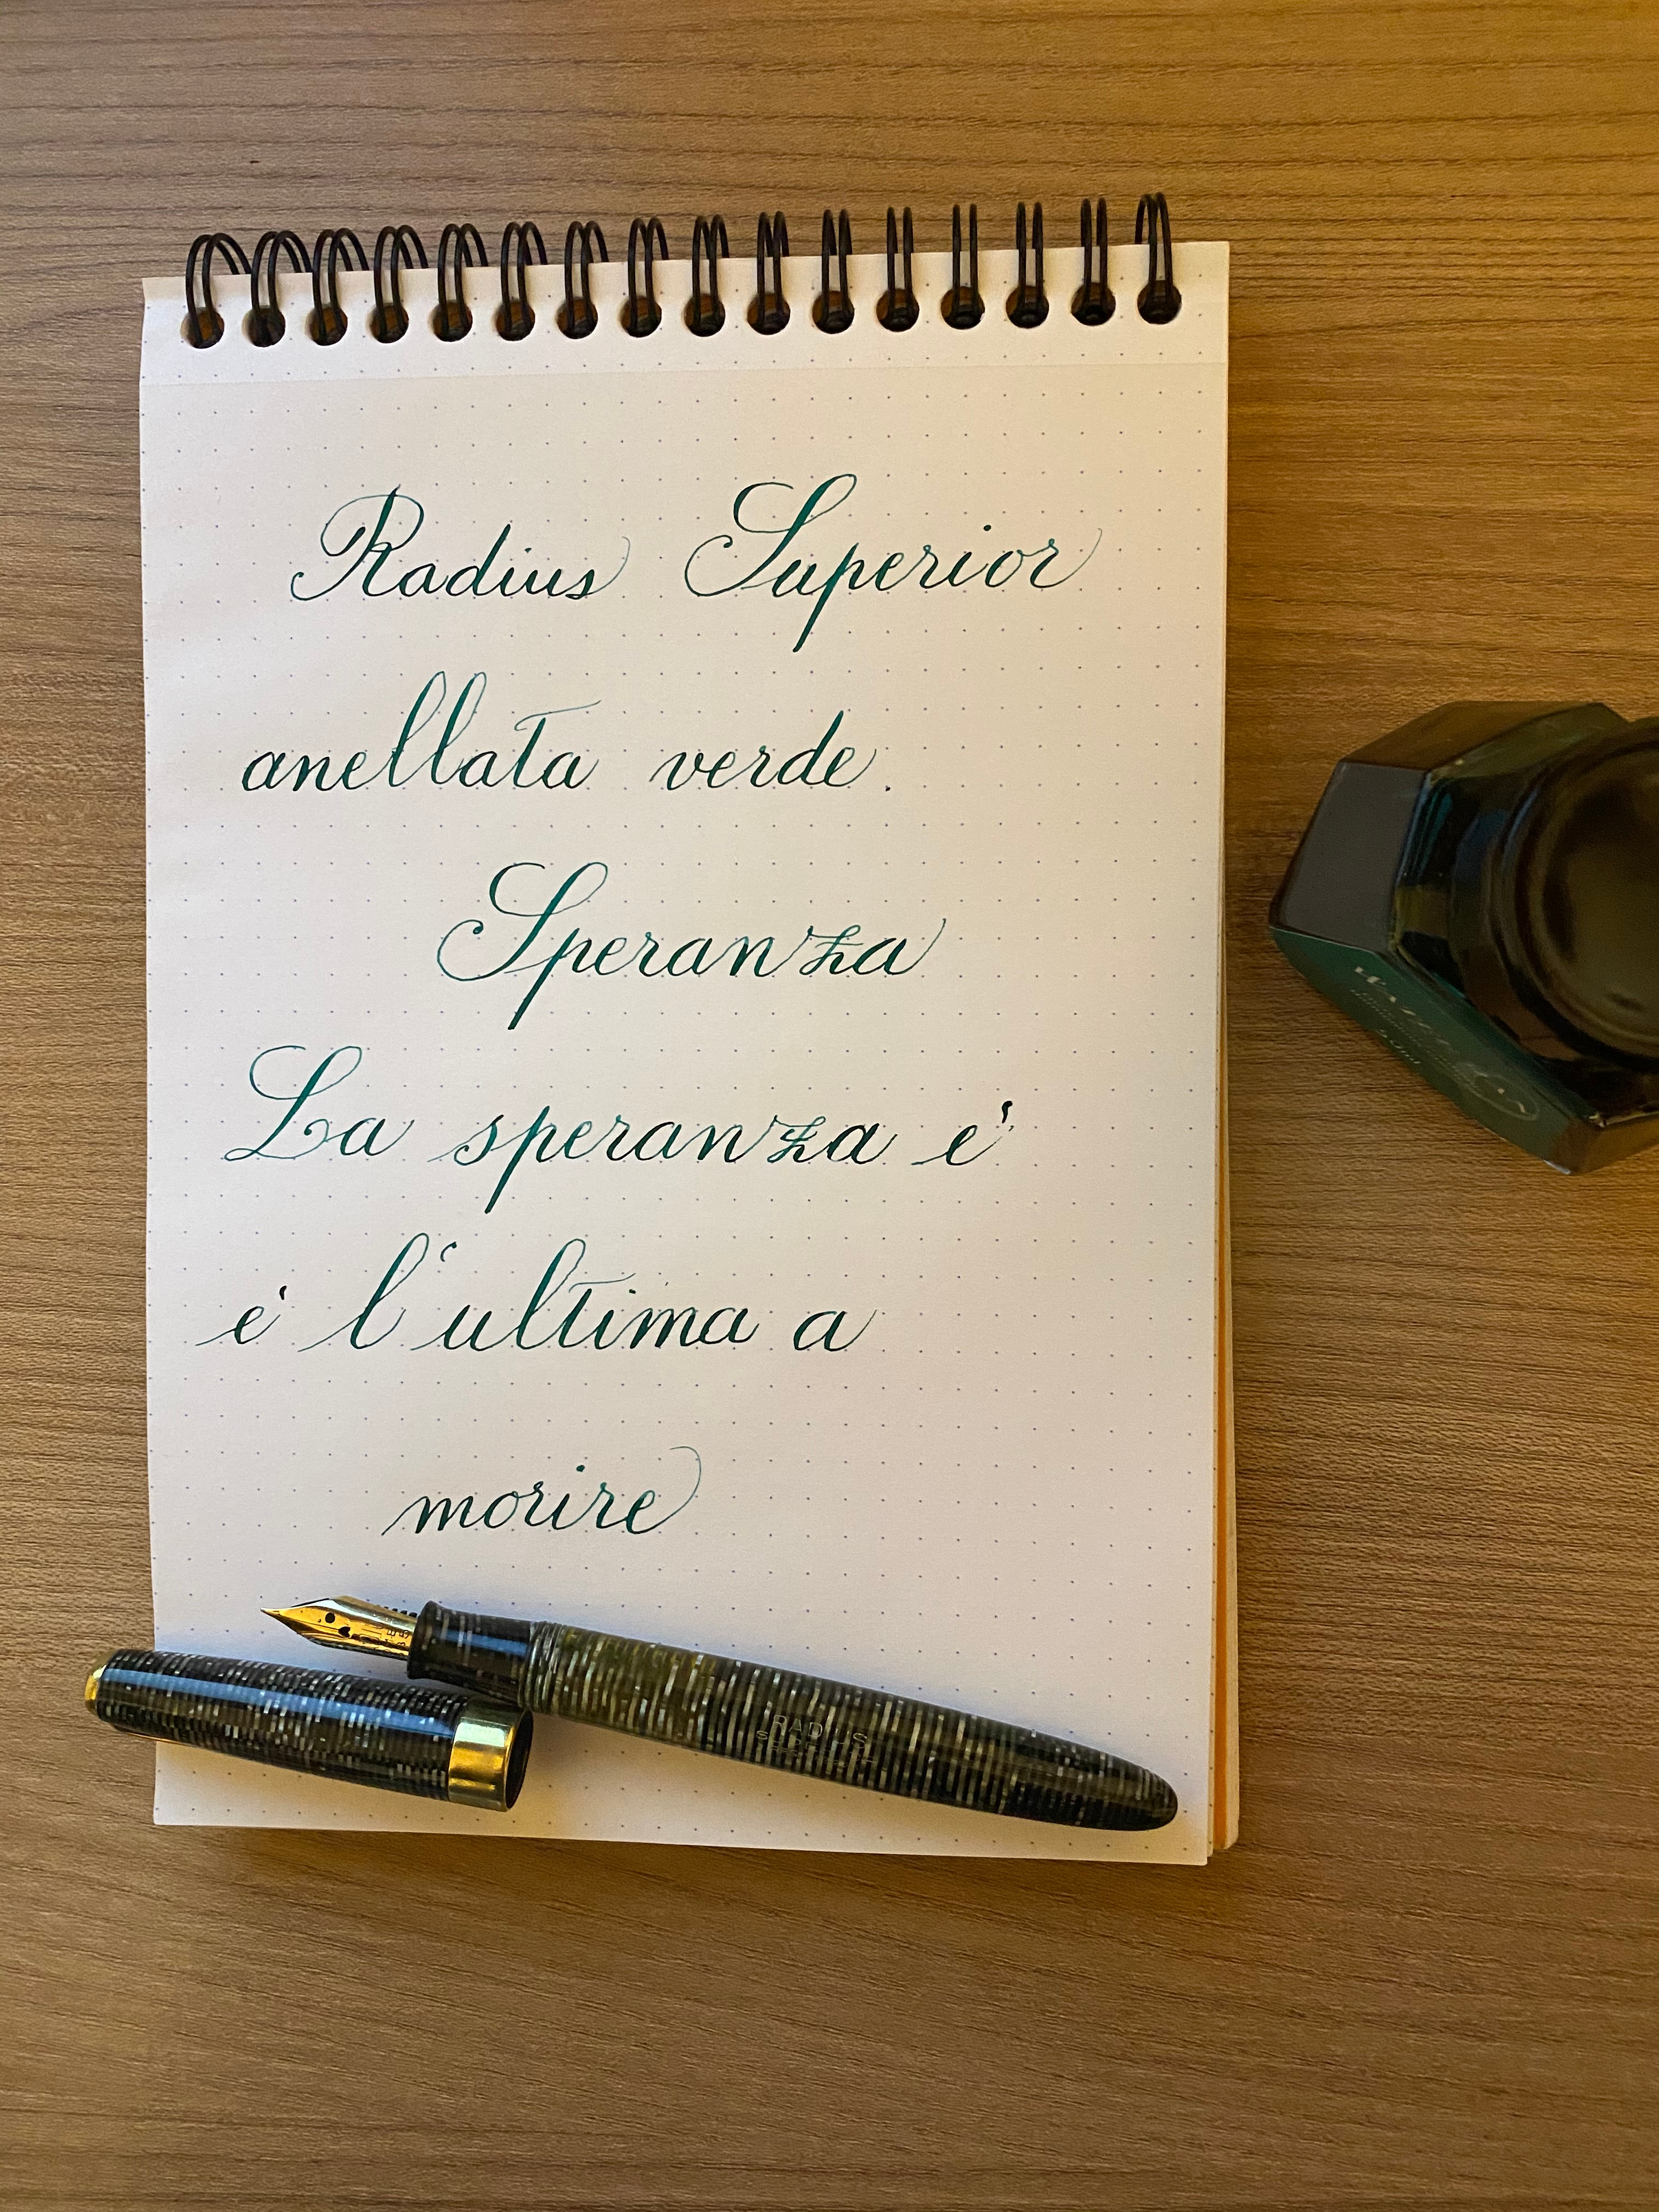 Radius Superior
anellata verde.
Speranza
La speranza è
è l'ultima a
morire
RADIUS
SUPERIOR